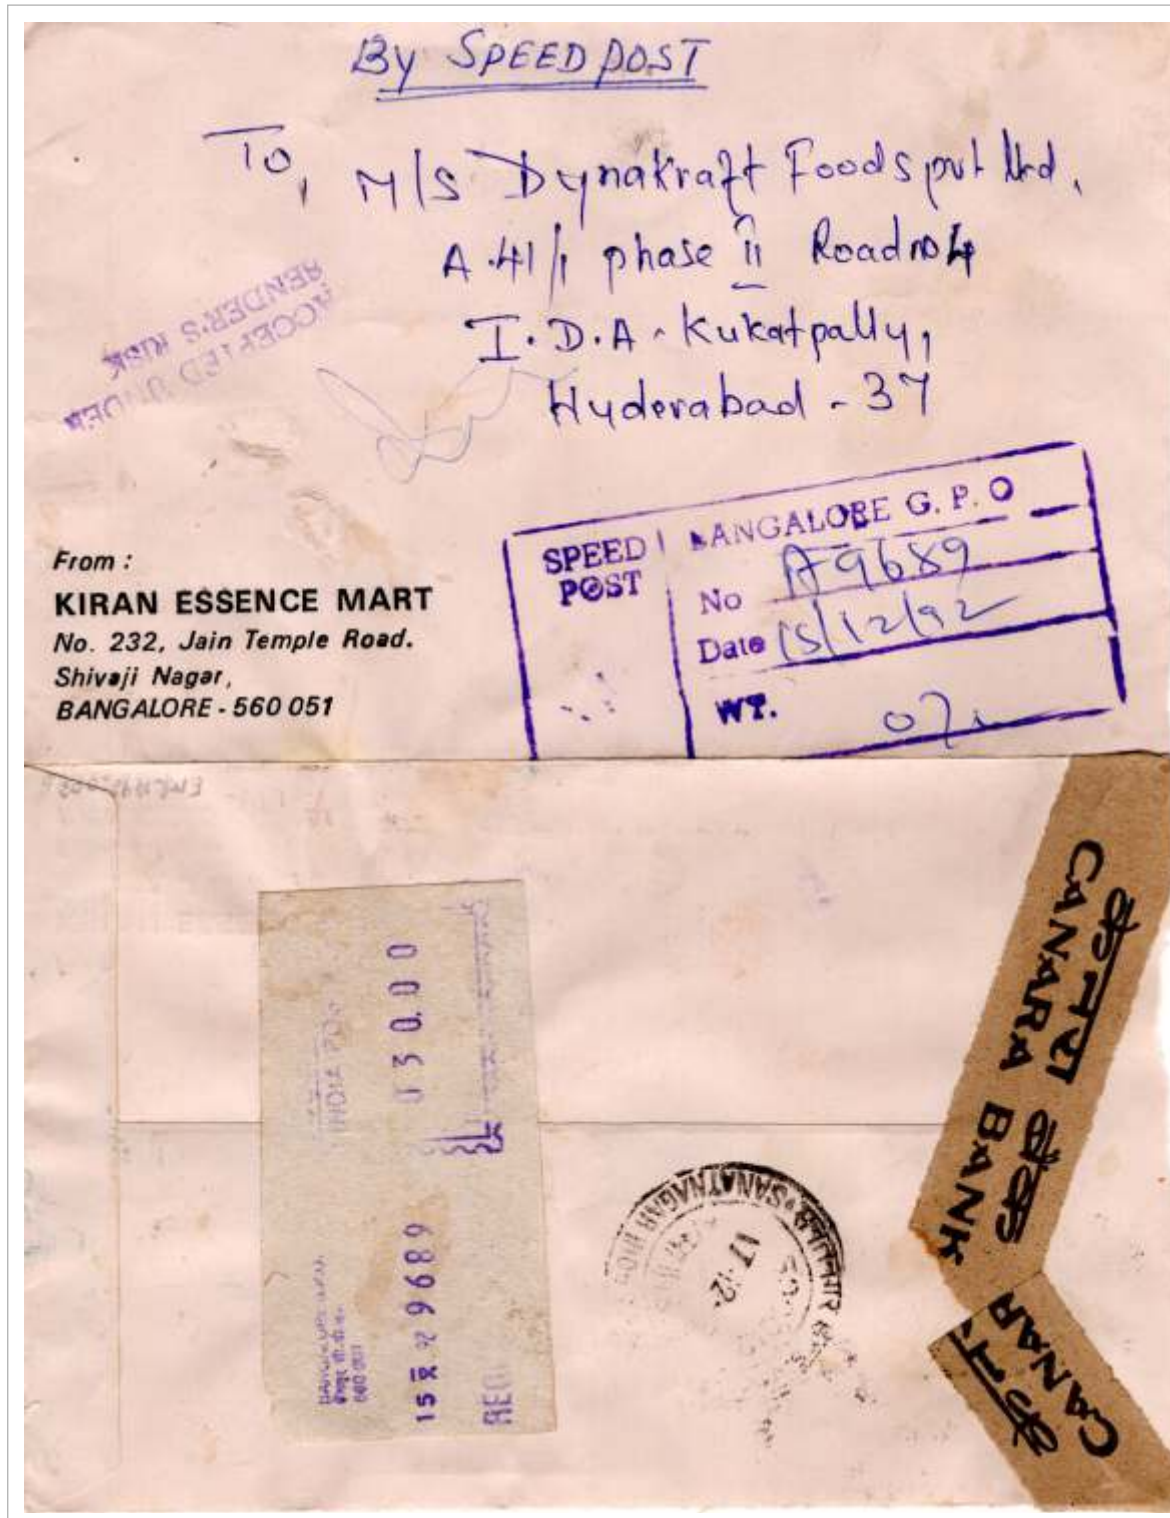 By SPEED POST
To,
M/S Dynakraft Foods pvt ltd,
A.41/1 phase II Road no 4
I.D.A. Kukatpally,
Hyderabad - 37
ACCEPTED UNDER
SENDER'S RISK
From :
KIRAN ESSENCE MART
No. 232, Jain Temple Road.
Shivaji Nagar,
BANGALORE - 560 051
SPEED
POST
BANGALORE G. P. O
No A9689
Date 15/12/92
WT.
INDIA
030.00
15 9689
560 001
SANATNAGAR
17-12
केनरा बैंक
CANARA BANK
CANAR